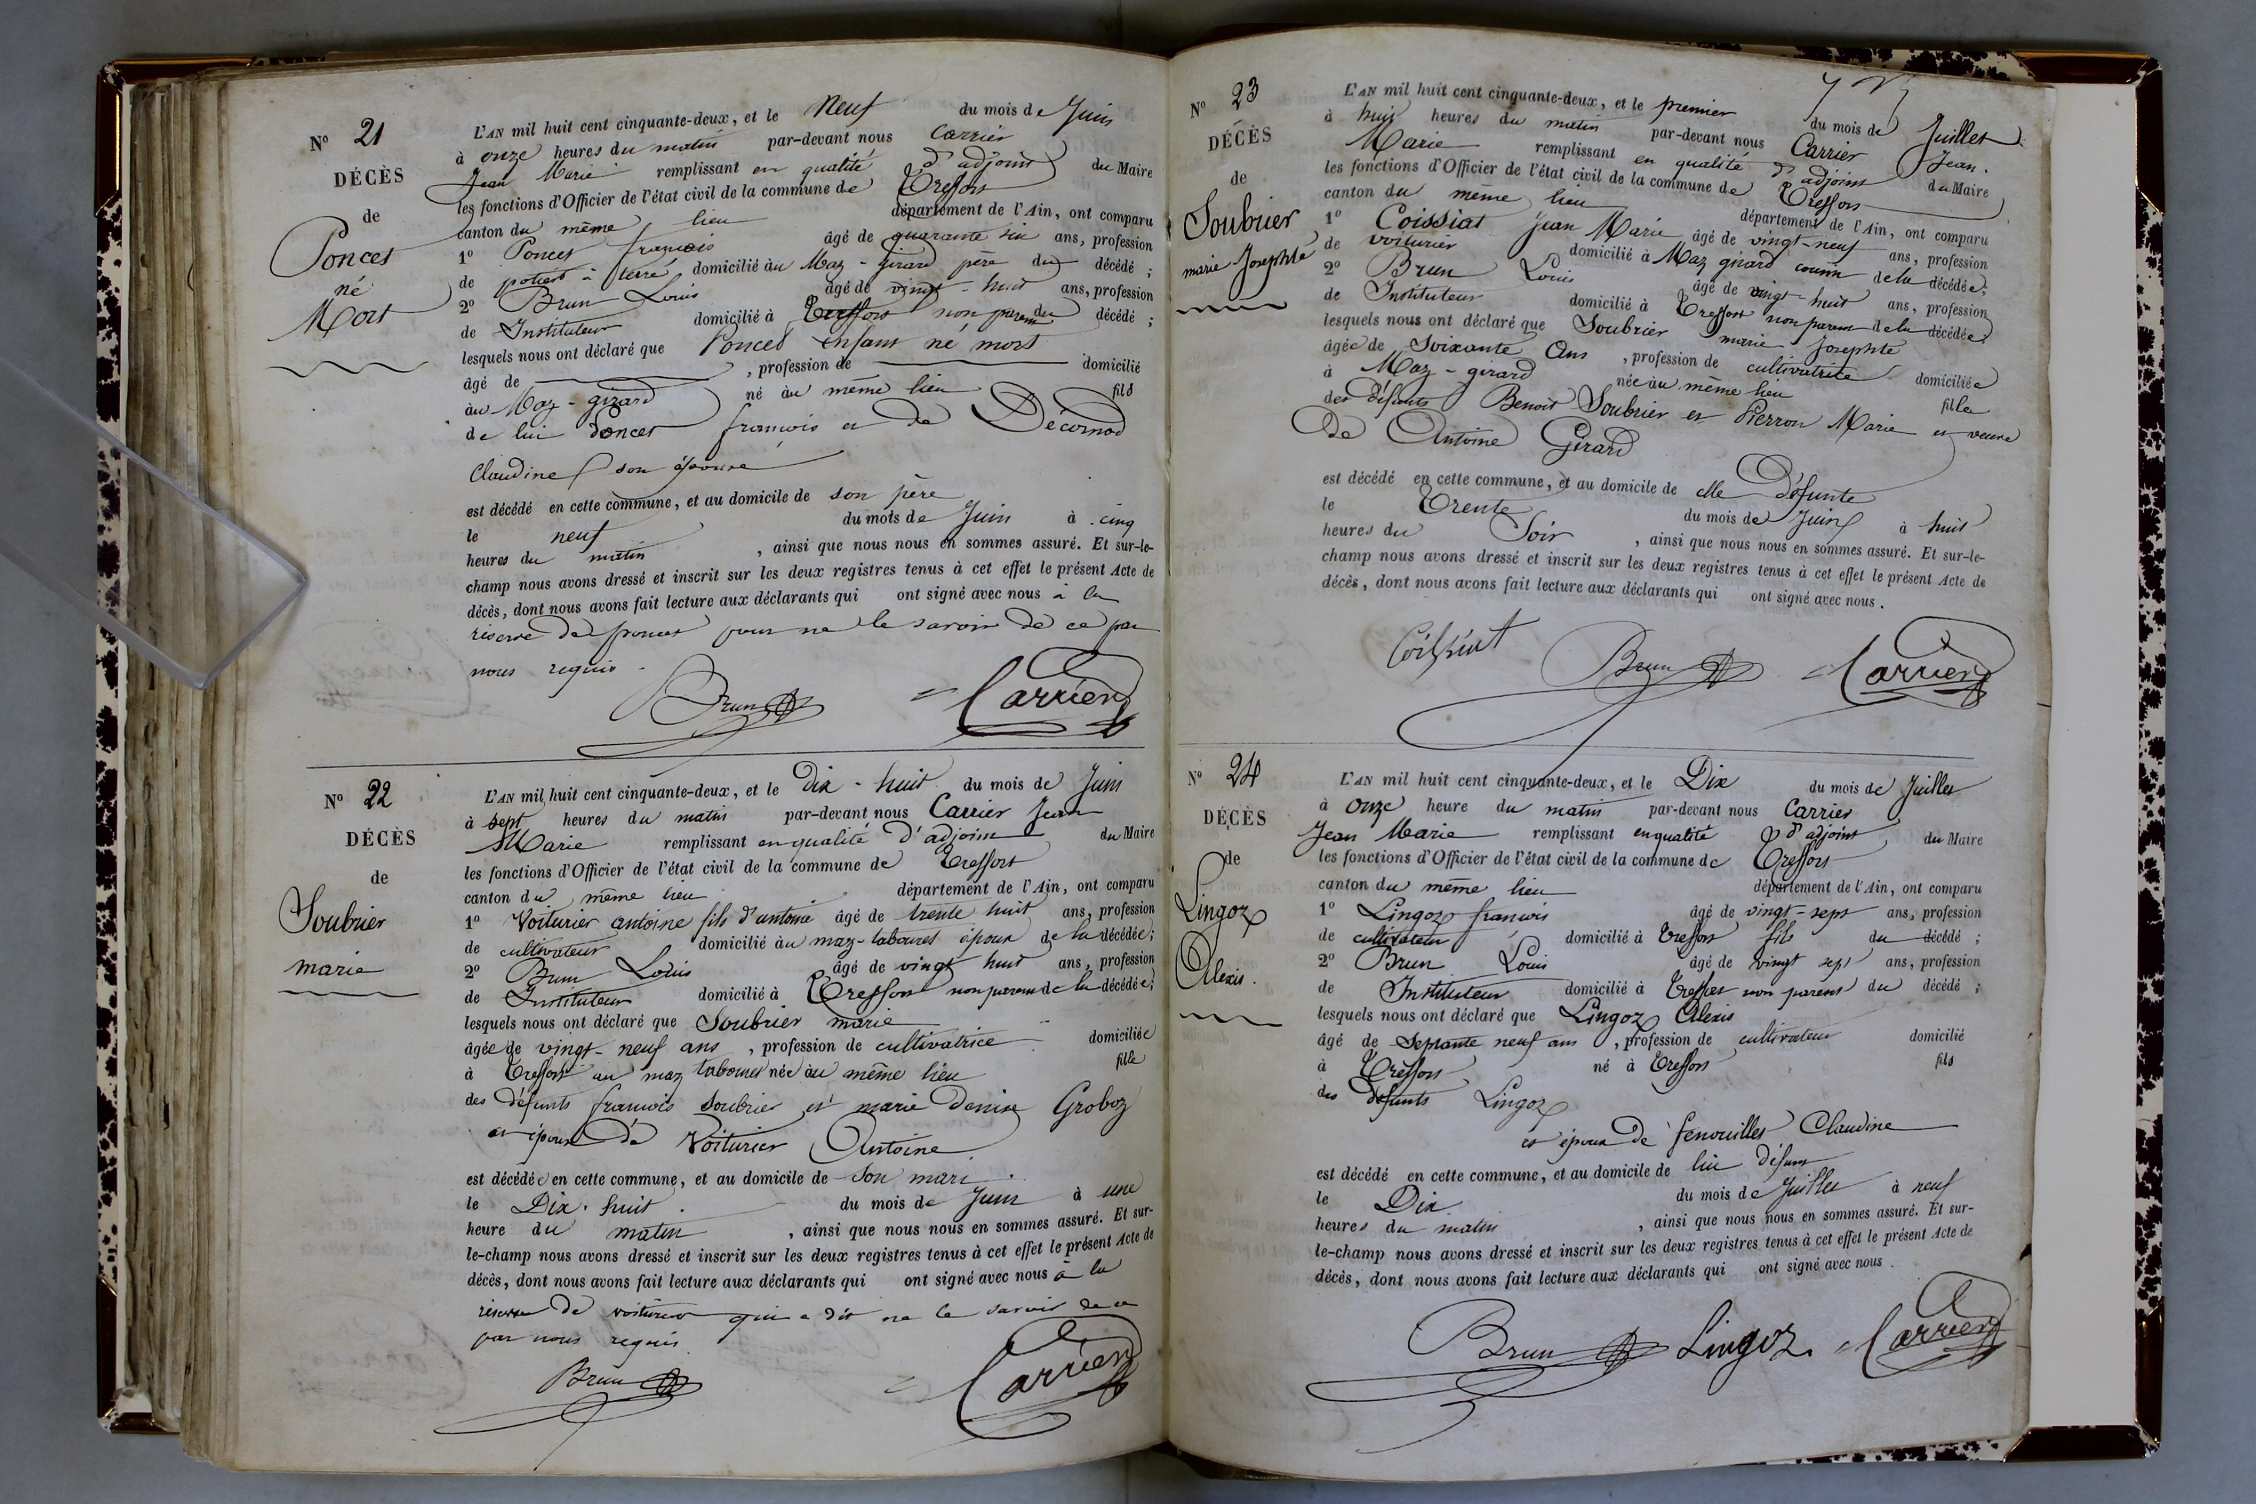 N° 21
DÉCÈS
de
Poncet
né
Mort
L'AN mil huit cent cinquante-deux, et le neuf du mois de Juin
à onze heures du matin par-devant nous Carrier
Jean Marie remplissant en qualité d'adjoint du Maire
les fonctions d'Officier de l'état civil de la commune de Treffort
canton du même lieu département de l'Ain, ont comparu
1° Poncet françois âgé de quarante six ans, profession
de potier à terre domicilié au Maz-Girard père du décédé ;
2° Brun Louis âgé de vingt-huit ans, profession
de Instituteur domicilié à Treffort non parent du décédé ;
lesquels nous ont déclaré que Poncet enfant né mort
âgé de , profession de domicilié
au Maz-girard né au même lieu fils
de lui Poncet françois et de Décornod
Claudine son épouse
est décédé en cette commune, et au domicile de son père
le neuf du mois de Juin à cinq
heures du matin , ainsi que nous nous en sommes assuré. Et sur-le-
champ nous avons dressé et inscrit sur les deux registres tenus à cet effet le présent Acte de
décès, dont nous avons fait lecture aux déclarants qui ont signé avec nous à la
réserve de poncet pour ne le savoir de ce par
nous requis.
Brun Carrier
N° 22
DÉCÈS
de
Soubrier
marie
L'AN mil huit cent cinquante-deux, et le Dix-huit du mois de Juin
à sept heures du matin par-devant nous Carrier Jean
Marie remplissant en qualité d'adjoint du Maire
les fonctions d'Officier de l'état civil de la commune de Treffort
canton du même lieu département de l'Ain, ont comparu
1° Voiturier antoine fils d'antoine âgé de trente huit ans, profession
de cultivateur domicilié au maz-tabouret époux de la décédée ;
2° Brun Louis âgé de vingt huit ans, profession
de Instituteur domicilié à Treffort non parent de la décédée ;
lesquels nous ont déclaré que Soubrier marie
âgée de vingt-neuf ans , profession de cultivatrice domiciliée
à Treffort au maz tabouret née au même lieu fille
des défunts françois soubrier et marie denise Groboz
et épouse de Voiturier Antoine
est décédée en cette commune, et au domicile de son mari
le Dix-huit du mois de Juin à une
heure du matin , ainsi que nous nous en sommes assuré. Et sur-
le-champ nous avons dressé et inscrit sur les deux registres tenus à cet effet le présent Acte de
décès, dont nous avons fait lecture aux déclarants qui ont signé avec nous à la
réserve de voiturier qui a dit ne le savoir de ce
par nous requis
Brun Carrier
N° 23
DÉCÈS
de
Soubrier
marie Josephte
L'AN mil huit cent cinquante-deux, et le premier du mois de Juillet
à huit heures du matin par-devant nous Carrier Jean.
Marie remplissant en qualité d'adjoint du Maire
les fonctions d'Officier de l'état civil de la commune de Treffort
canton du même lieu département de l'Ain, ont comparu
1° Coissiat Jean Marie âgé de vingt-neuf ans, profession
de voiturier domicilié à Maz girard cousin de la décédée ;
2° Brun Louis âgé de vingt-huit ans, profession
de Instituteur domicilié à Treffort non parent de la décédée ;
lesquels nous ont déclaré que Soubrier marie Josephte
âgée de Soixante Ans , profession de cultivatrice domiciliée
à Maz-girard née au même lieu fille
des défunts Benoit Soubrier et Pierron Marie et veuve
de Antoine Girard
est décédé en cette commune, et au domicile de elle Défunte
le Trente du mois de Juin à huit
heures du Soir , ainsi que nous nous en sommes assuré. Et sur-le-
champ nous avons dressé et inscrit sur les deux registres tenus à cet effet le présent Acte de
décès, dont nous avons fait lecture aux déclarants qui ont signé avec nous.
Coissiat Brun Carrier
N° 24
DÉCÈS
de
Lingoz
Alexis.
L'AN mil huit cent cinquante-deux, et le Dix du mois de Juillet
à onze heure du matin par-devant nous Carrier
Jean Marie remplissant en qualité d'adjoint du Maire
les fonctions d'Officier de l'état civil de la commune de Treffort
canton du même lieu département de l'Ain, ont comparu
1° Lingoz françois âgé de vingt-sept ans, profession
de cultivateur domicilié à Treffort fils du décédé ;
2° Brun Louis âgé de vingt sept ans, profession
de Instituteur domicilié à Treffort non parent du décédé ;
lesquels nous ont déclaré que Lingoz Alexis
âgé de Septante neuf ans , profession de cultivateur domicilié
à Treffort né à Treffort fils
des défunts Lingoz
et époux de fenouillet Claudine
est décédé en cette commune, et au domicile de lui défunt
le Dix du mois de Juillet à neuf
heures du matin , ainsi que nous nous en sommes assuré. Et sur-
le-champ nous avons dressé et inscrit sur les deux registres tenus à cet effet le présent Acte de
décès, dont nous avons fait lecture aux déclarants qui ont signé avec nous.
Brun Lingoz Carrier